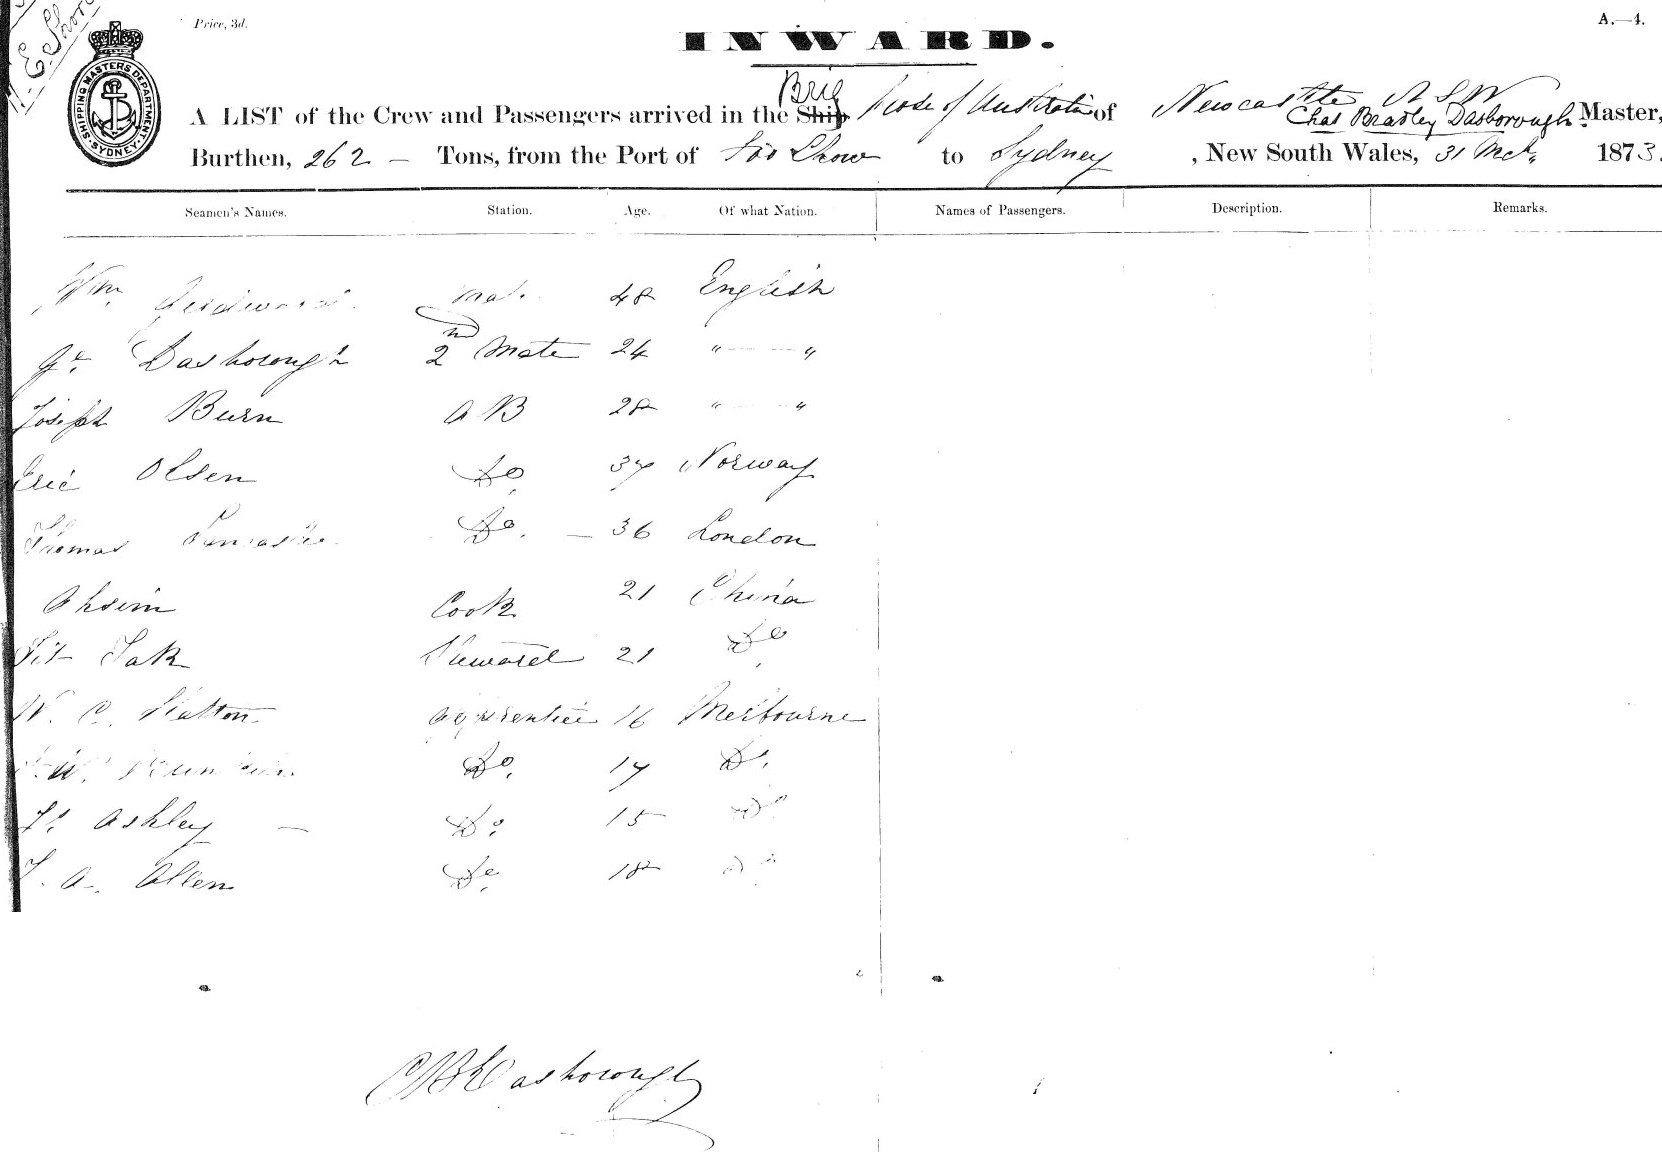 Price, 3d.
A.—4.
SHIPPING MASTERS DEPARTMENT
SYDNEY
INWARD.
Brig
A LIST of the Crew and Passengers arrived in the Ship Rose of Australia of Newcastle NSW
Chas Bradley Dasborough Master,
Burthen, 262 — Tons, from the Port of Foo Chow to Sydney, New South Wales, 31 Mch, 1873.
Seamen's Names. Station. Age. Of what Nation. Names of Passengers. Description. Remarks.
Wm Mate 48 English
Dasborough 2nd Mate 24 " — "
Joseph Burn AB 28 " — "
Eric Olsen Do. 37 Norway
Thomas Do. — 36 London
Ahsim Cook 21 China
Tak Steward 21 Do.
W. C. Apprentice 16 Melbourne
W. Do. 17 Do.
Ashley — Do. 15 Do.
A. Allen Do. 18 Do.
CB Dasborough